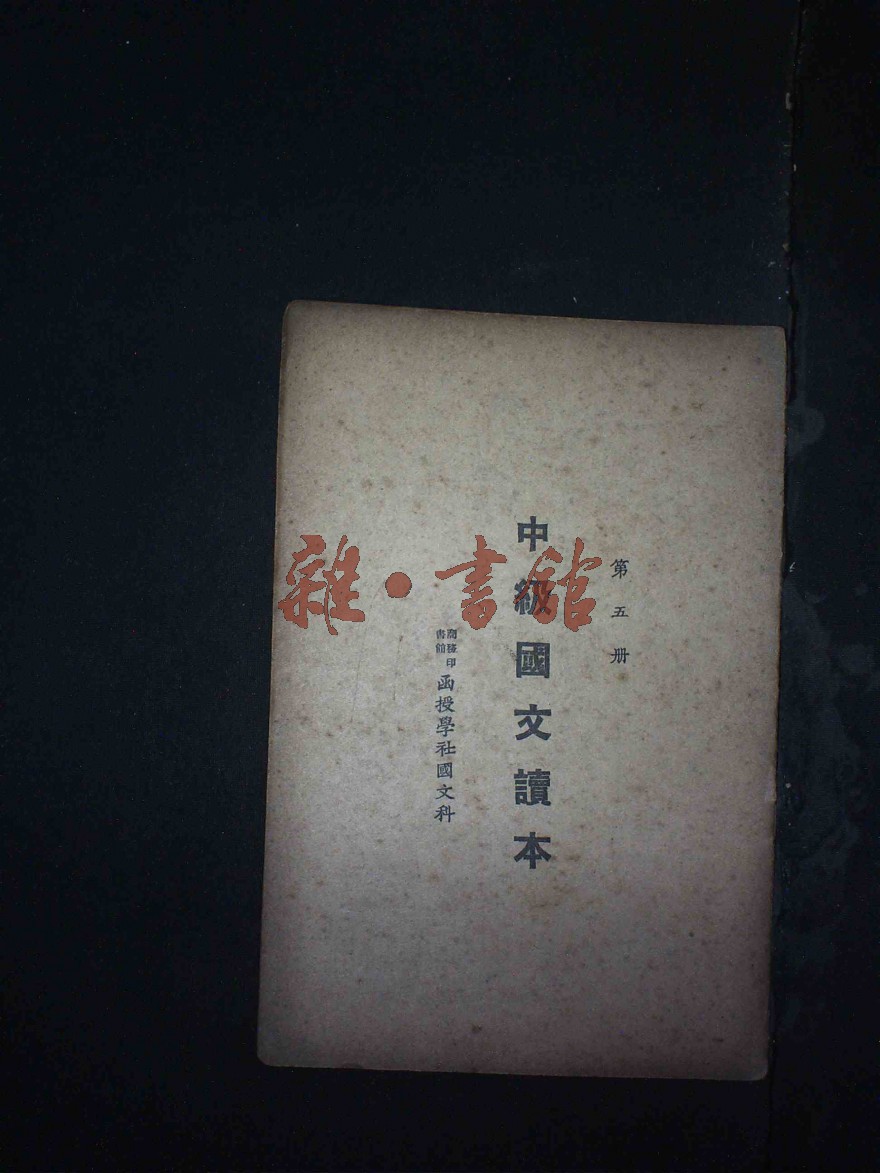 第五册
中級國文讀本
商務印書館
函授學社國文科
雜·書館